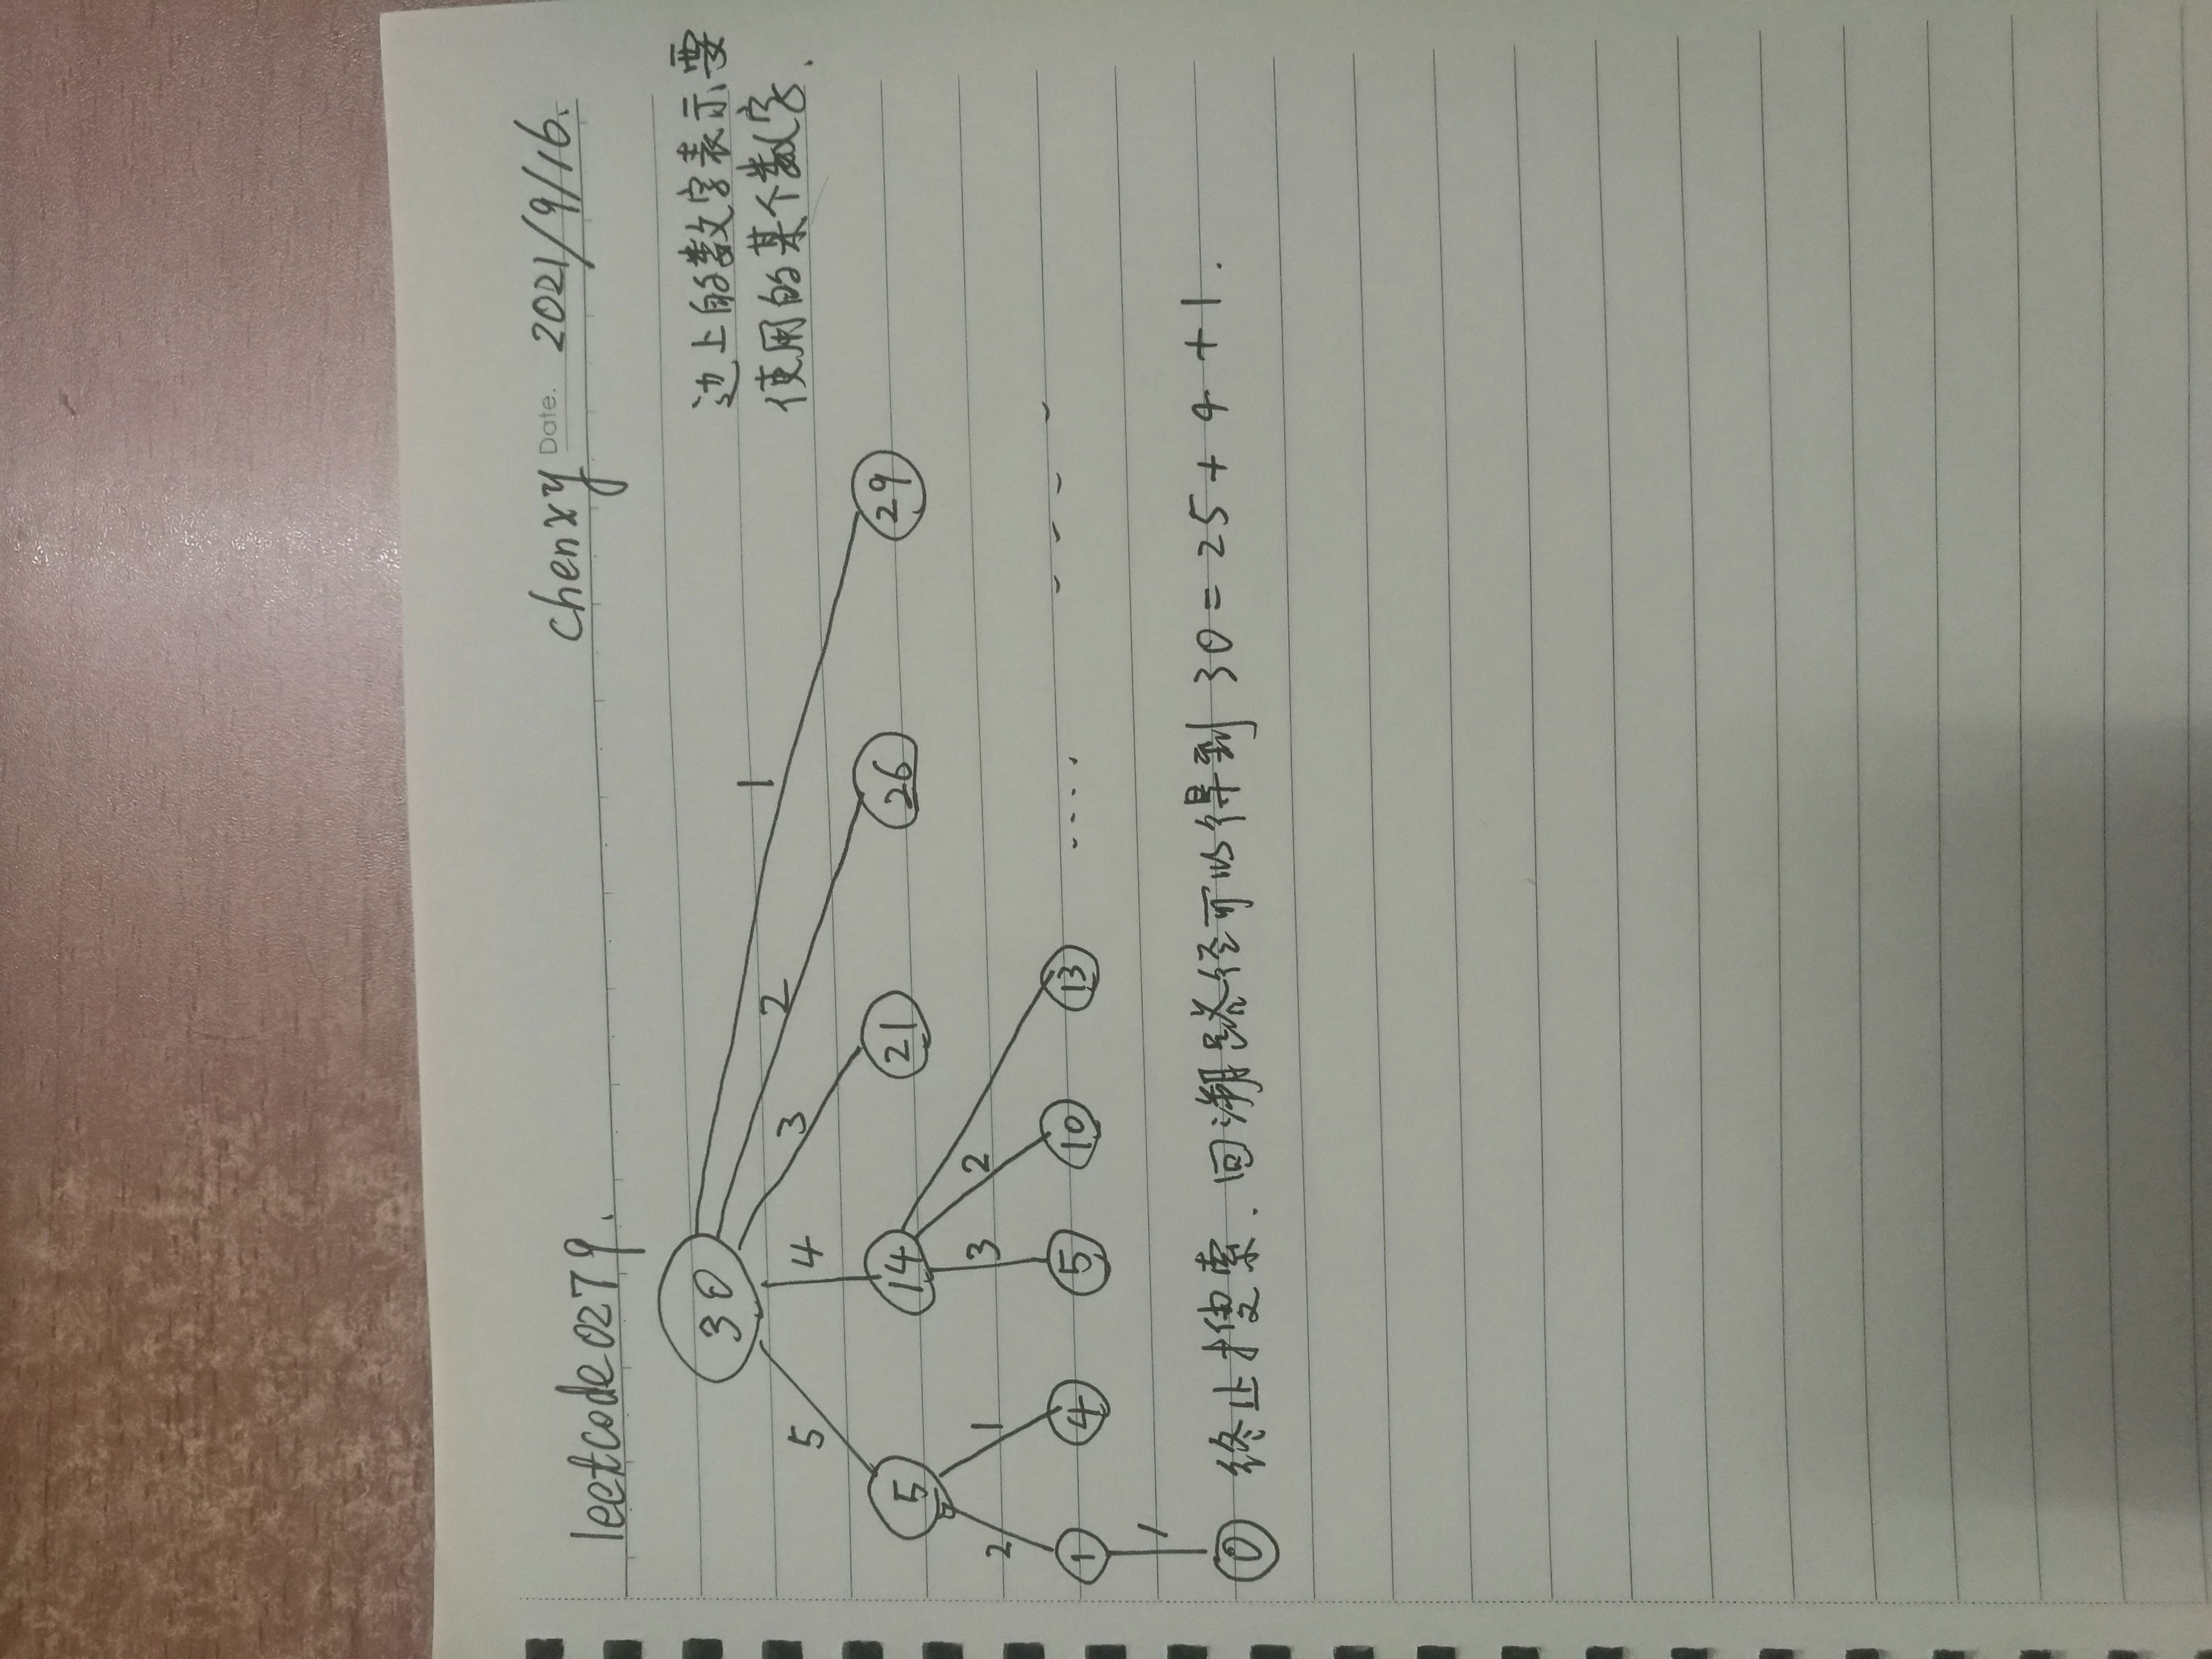 leetcode0279.
chenxy Date. 2021/9/16.
30
边上的数字表示要
使用的某个数字.
5 4 3 2 1
5 14 21 26 29
2 1 3 2
1 4 5 10 13 .... ----
1
0 终止搜索. 回溯路径可以得到 30=25+4+1.